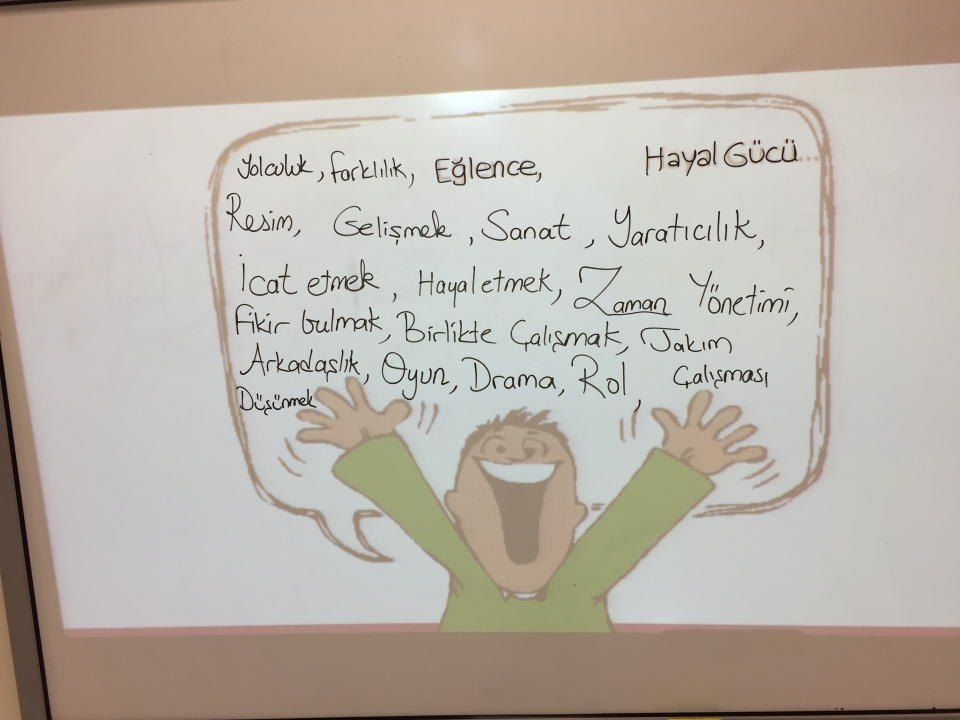 Yolculuk, farklılık, Eğlence, Hayal Gücü...
Resim, Gelişmek, Sanat, Yaratıcılık,
İcat etmek, Hayal etmek, Zaman Yönetimi,
Fikir bulmak, Birlikte Çalışmak, Takım
Arkadaşlık, Oyun, Drama, Rol, Çalışması
Düşünmek